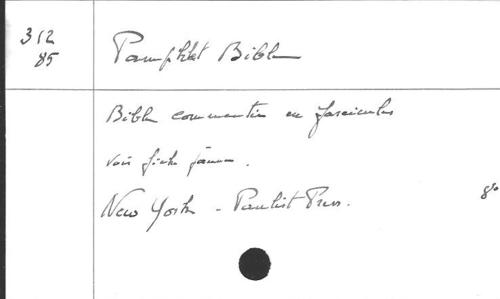 312
85
Pamphlet Bible
Bible commentée en fascicules
voir fiche jaune.
New York - Paulist Press.
8°